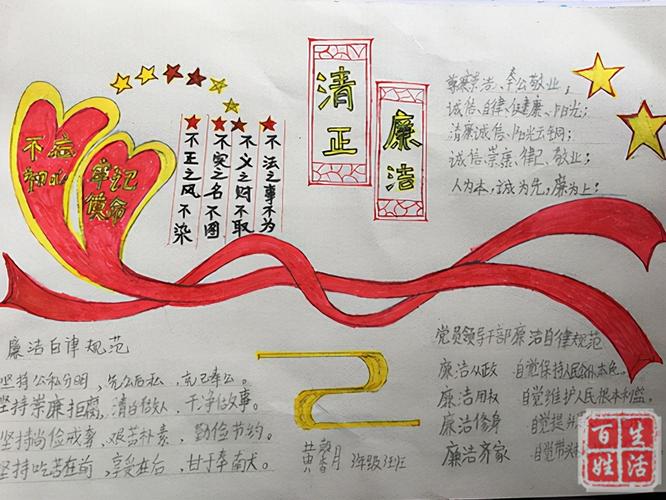 不忘
初心
牢记
使命
不正之风不染
不实之名不图
不义之财不取
不法之事不为
清正
廉洁
尊廉崇洁、奉公敬业；
诚信、自律、促健康、阳光；
清廉诚信、阳光
诚信、崇廉、律己、敬业；
人为本，诚为先，廉为上；
廉洁自律规范
坚持公私分明，先公后私，克己奉公。
坚持崇廉拒腐，清白做人，干净做事。
坚持尚俭戒奢，艰苦朴素，勤俭节约。
坚持吃苦在前，享受在后，甘于奉献
党员领导干部廉洁自律规范
廉洁从政 自觉保持人民公仆本色。
廉洁用权 自觉维护人民根本利益。
廉洁修身 自觉提升
廉洁齐家 自觉带头
月 3年级
百姓
生活